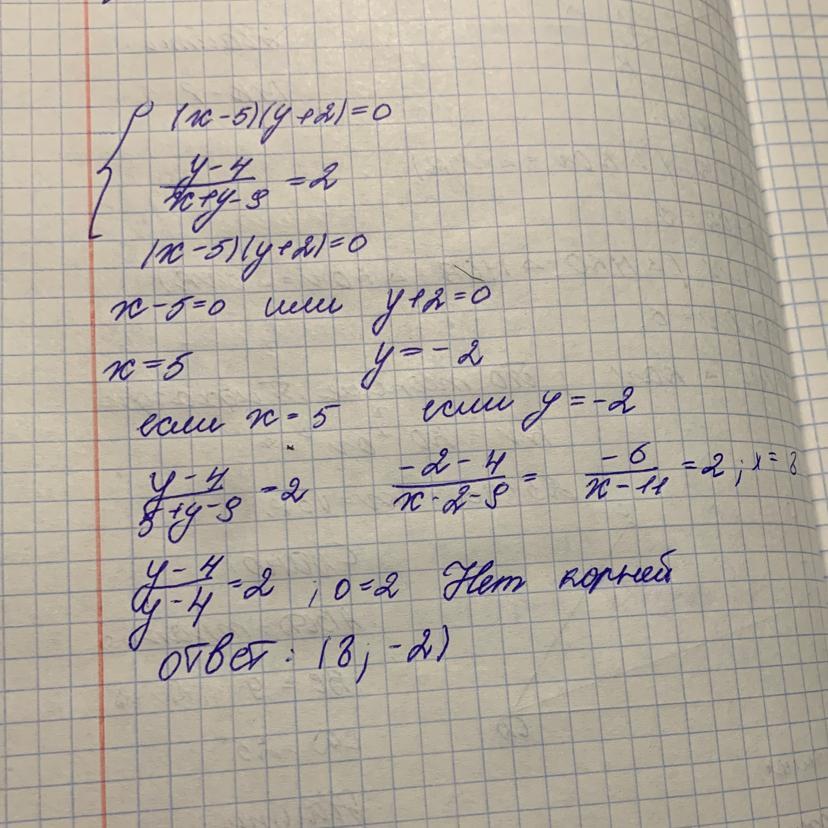 (x-5)(y+2)=0
(y-4)/(x+y-9) = 2
(x-5)(y+2)=0
x-5=0 или y+2=0
x=5 y=-2
если x=5 если y=-2
(y-4)/(5+y-9) = 2 (-2-4)/(x-2-9) = (-6)/(x-11) = 2; x=8
(y-4)/(y-4) = 2; 0=2 Нет корней
ответ: (8; -2)